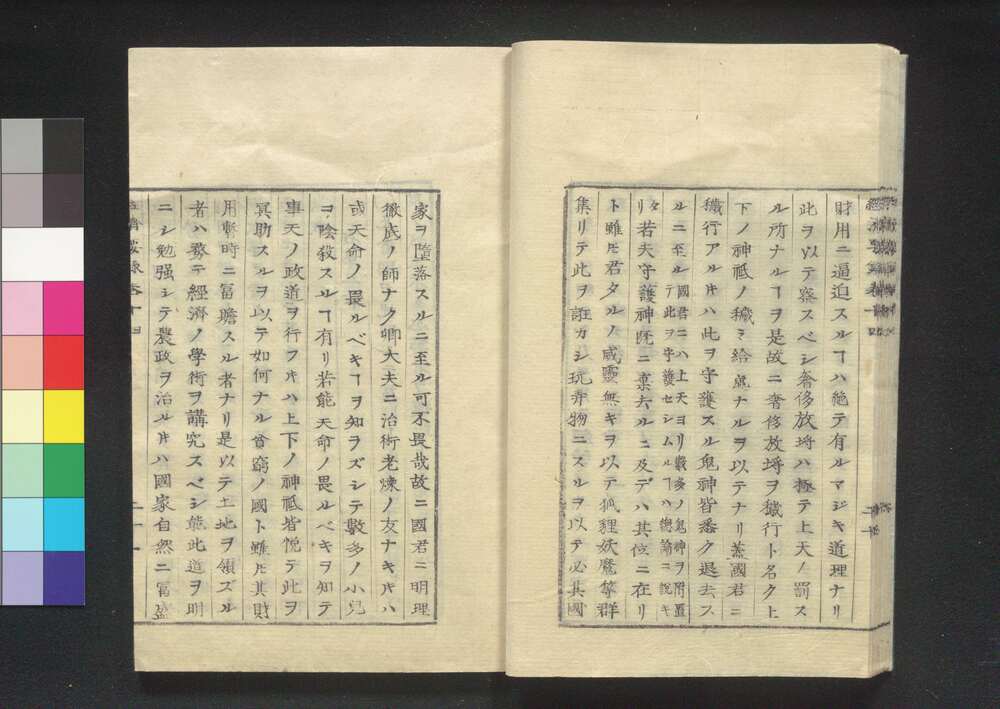 財用ニ逼迫スルヿハ絶テ有ルマジキ道理ナリ
此ヲ以テ察スベシ奢侈放埓ハ極テ上天ノ罰ス
ル所ナルヿヲ是故ニ奢侈放埓ヲ穢行ト名ク上
下ノ神祗ノ穢ミ給処ナルヲ以テナリ蓋國君ニ
穢行アルトキハ此ヲ守護スル鬼神皆悉ク退去ス
ルニ至ル國君ニハ上天ヨリ數多ノ鬼神ヲ附置
テ此ヲ守護セシムルヿハ總論ニ説キ
タリ若夫守護神既ニ棄去ルニ及デハ其位ニ在リ
ト雖トモ君タルノ威靈無キヲ以テ狐狸妖魔等群
集リテ此ヲ誑カシ玩弄物ニスルヲ以テ必其國
家ヲ墮落スルニ至ル可不畏哉故ニ國君ニ明理
徹底ノ師ナク卿大夫ニ治術老煉ノ友ナキトキハ
或天命ノ畏ルベキヿヲ知ラズシテ數多ノ小兒
ヲ陰殺スルヿ有リ若能天命ノ畏ルベキヲ知テ
事天ノ政道ヲ行フトキハ上下ノ神祗皆悅テ此ヲ
冥助スルヲ以テ如何ナル貧窮ノ國ト雖トモ其財
用暫時ニ富贍スル者ナリ是以テ土地ヲ領ズル
者ハ務テ經濟ノ學術ヲ講究スベシ能此道ヲ明
ニシ勉强シテ農政ヲ治ルトキハ國家自然ニ富盛